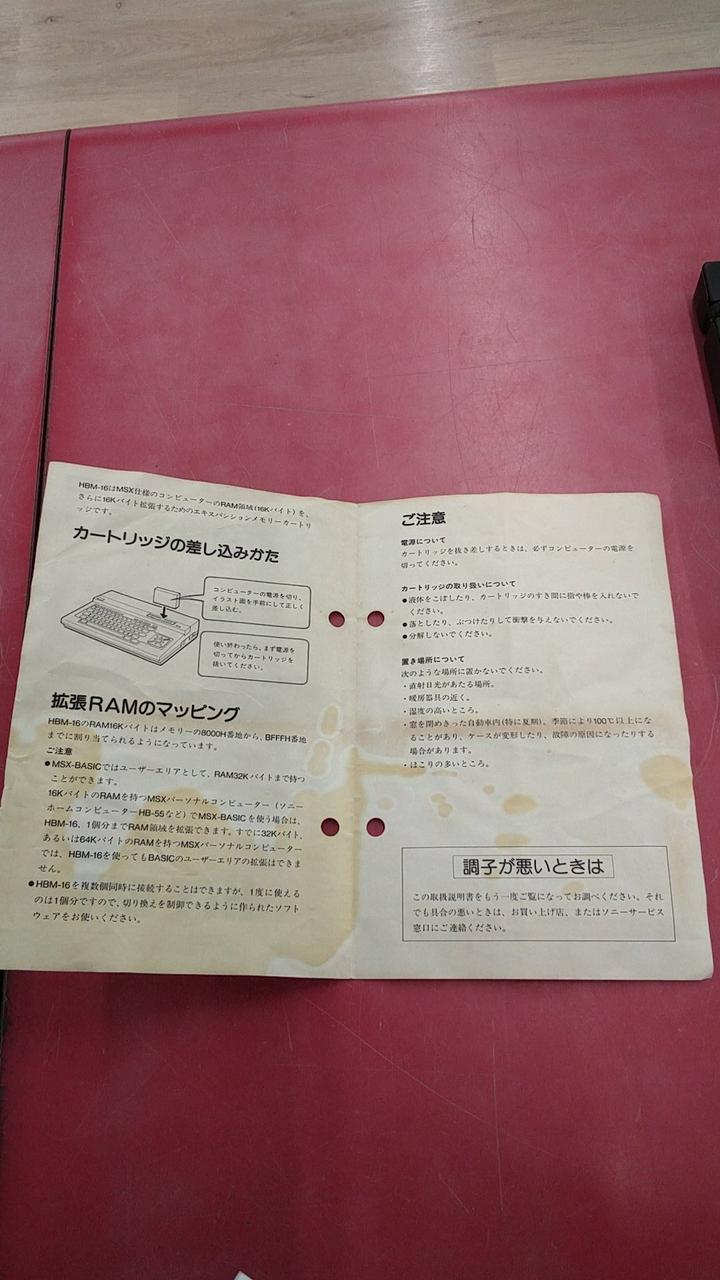 HBM-16はMSX仕様のコンピューターのRAM領域(16Kバイト)を、
さらに16Kバイト拡張するためのエキスパンションメモリーカートリ
ッジです。
カートリッジの差し込みかた
コンピューターの電源を切り、
イラスト面を手前にして正しく
差し込む。
使い終わったら、まず電源を
切ってからカートリッジを
抜いてください。
拡張RAMのマッピング
HBM-16のRAM16Kバイトはメモリーの8000H番地から、BFFFH番地
までに割り当てられるようになっています。
ご注意
●MSX-BASICではユーザーエリアとして、RAM32Kバイトまで持つ
ことができます。
16KバイトのRAMを持つMSXパーソナルコンピューター（ソニー
ホームコンピューターHB-55など）でMSX-BASICを使う場合は、
HBM-16、1個分までRAM領域を拡張できます。すでに32Kバイト、
あるいは64KバイトのRAMを持つMSXパーソナルコンピューター
では、HBM-16を使ってもBASICのユーザーエリアの拡張はできま
せん。
●HBM-16を複数個同時に接続することはできますが、1度に使える
のは1個分ですので、切り換えを制御できるように作られたソフト
ウェアをお使いください。
ご注意
電源について
カートリッジを抜き差しするときは、必ずコンピューターの電源を
切ってください。
カートリッジの取り扱いについて
●液体をこぼしたり、カートリッジのすき間に指や棒を入れないで
ください。
●落としたり、ぶつけたりして衝撃を与えないでください。
●分解しないでください。
置き場所について
次のような場所に置かないでください。
・直射日光があたる場所。
・暖房器具の近く。
・湿度の高いところ。
・窓を閉めきった自動車内(特に夏期)。季節により100℃以上にな
ることがあり、ケースが変形したり、故障の原因になったりする
場合があります。
・ほこりの多いところ。
調子が悪いときは
この取扱説明書をもう一度ご覧になってお調べください。それ
でも具合の悪いときは、お買い上げ店、またはソニーサービス
窓口にご連絡ください。